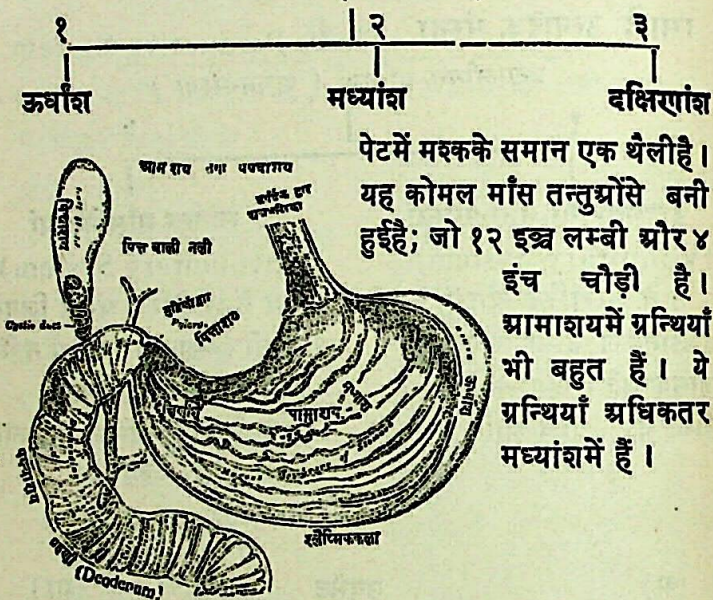 १ २ ३
ऊर्धांश मध्यांश दक्षिणांश
पेटमें मश्कके समान एक थैलीहै।
यह कोमल माँस तन्तुओंसे बनी
हुईहै; जो १२ इञ्च लम्बी और ४
इंच चौड़ी है।
आमाशयमें ग्रन्थियाँ
भी बहुत हैं। ये
ग्रन्थियाँ अधिकतर
मध्यांशमें हैं।
आमाशय तथा पक्वाशय
पित्त वाली नली
पित्ताशय
Cystic duct
श्लैष्मिककला
(Deodenum)